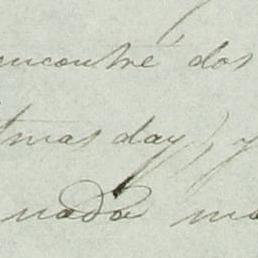 encontré dos
tmas day), y
nada ma